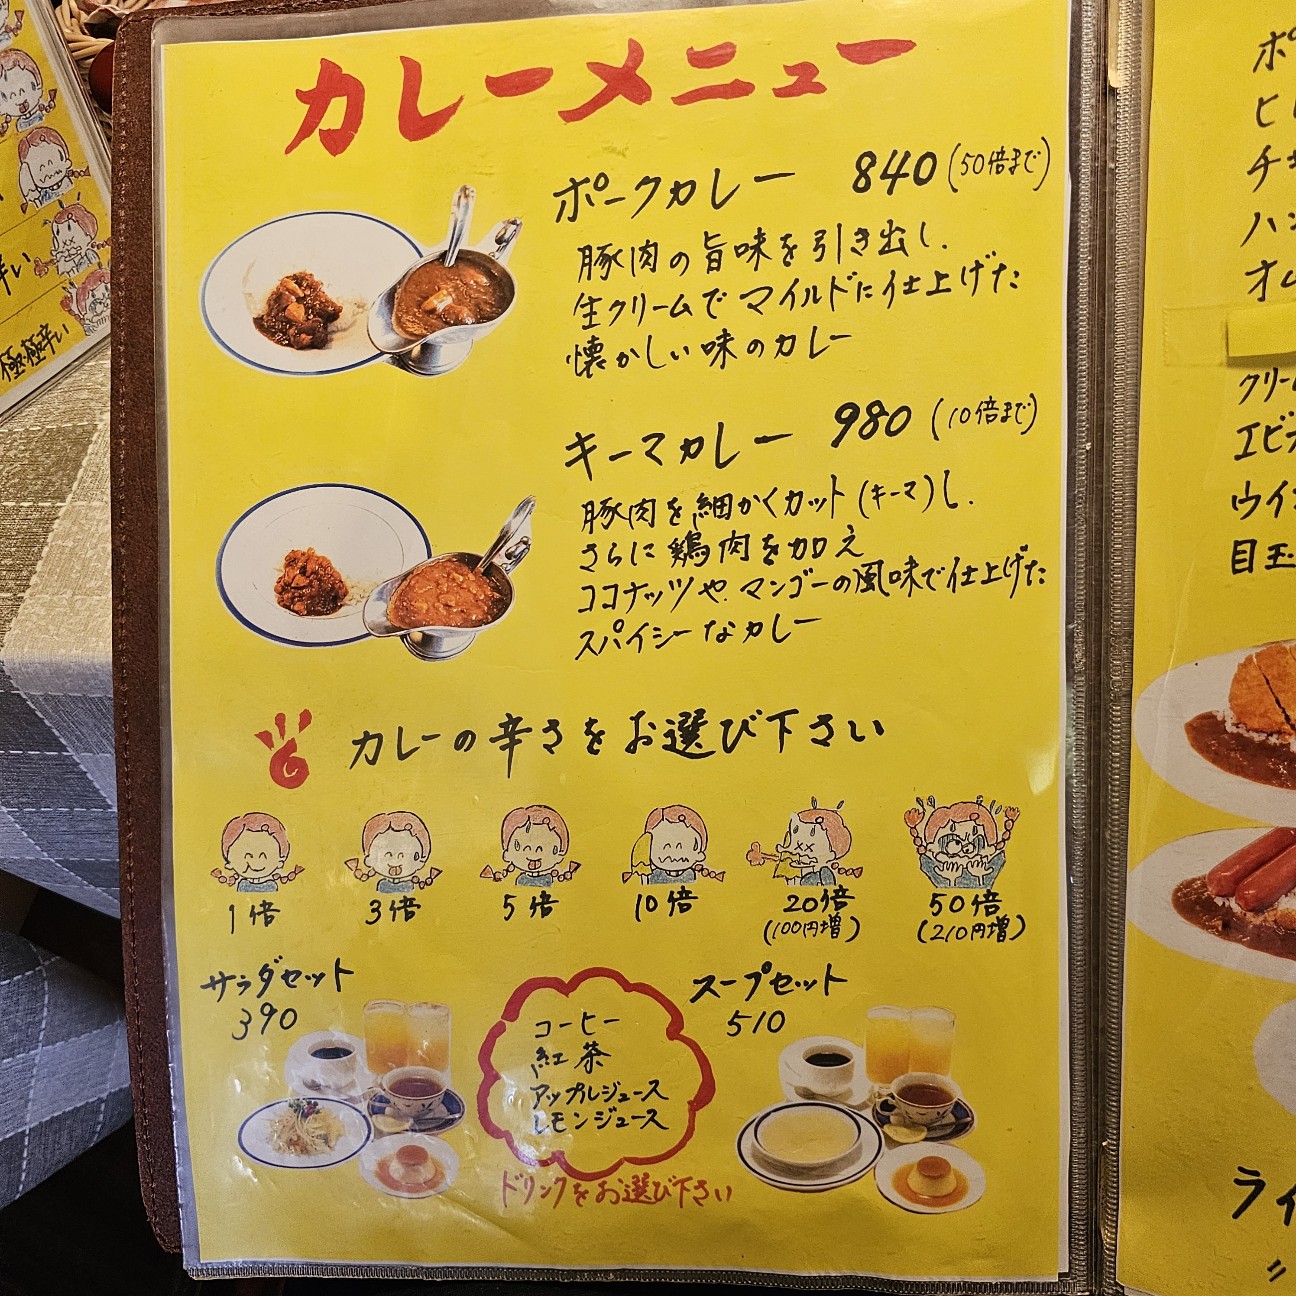 カレーメニュー
ポークカレー 840 (50倍まで)
豚肉の旨味を引き出し、
生クリームでマイルドに仕上げた
懐かしい味のカレー
キーマカレー 980 (10倍まで)
豚肉を細かくカット(キーマ)し、
さらに鶏肉を加え
ココナッツや、マンゴーの風味で仕上げた
スパイシーなカレー
カレーの辛さをお選び下さい
1倍
3倍
5倍
10倍
20倍
(100円増)
50倍
(210円増)
サラダセット
390
コーヒー
紅茶
アップルジュース
レモンジュース
ドリンクをお選び下さい
スープセット
510
辛い
極極辛い
目玉